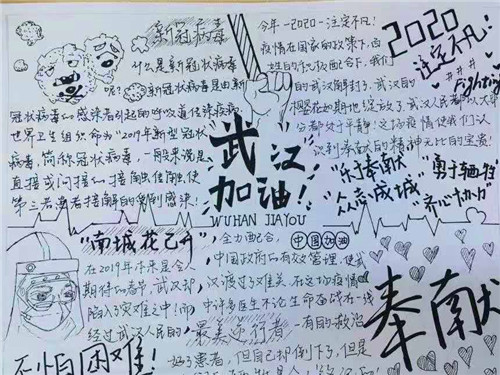 新冠病毒
什么是新冠状病毒
呢?
新冠状病毒是由新
冠状病毒的感染者引起的呼吸道传染疾病,
世界卫生组织命为"2019年新型冠状
病毒,简称冠状病毒,一般来说是
直接或间接的接触
第三者
今年-2020-注定不凡!
疫情在国家的政策下,百
姓的积极配合下,我们
的武汉解封了.武汉的
樱花在如期地绽放了.武汉人民都
于平静!这场疫情使我们认
识到奉献的精神无比的宝贵!
2020
注定不凡!
Fighting
武汉
加油!!
WUHAN JIAYOU
"乐于奉献"
"勇于牺牲"
众志成城
"齐心协力"
"南城花已开"
在2019年本来是令人
期待的春节,武汉却
陷入了灾难之中!而
经过武汉人民的
不怕困难!
全力配合,
中国加油
中国政府的有效管理,使武
汉渡过了难关,在这场疫情
中许多医生不论生命面战在一线
"最美逆行者"
一有的救治
好了患者,但自己却倒下了,但是
奉献